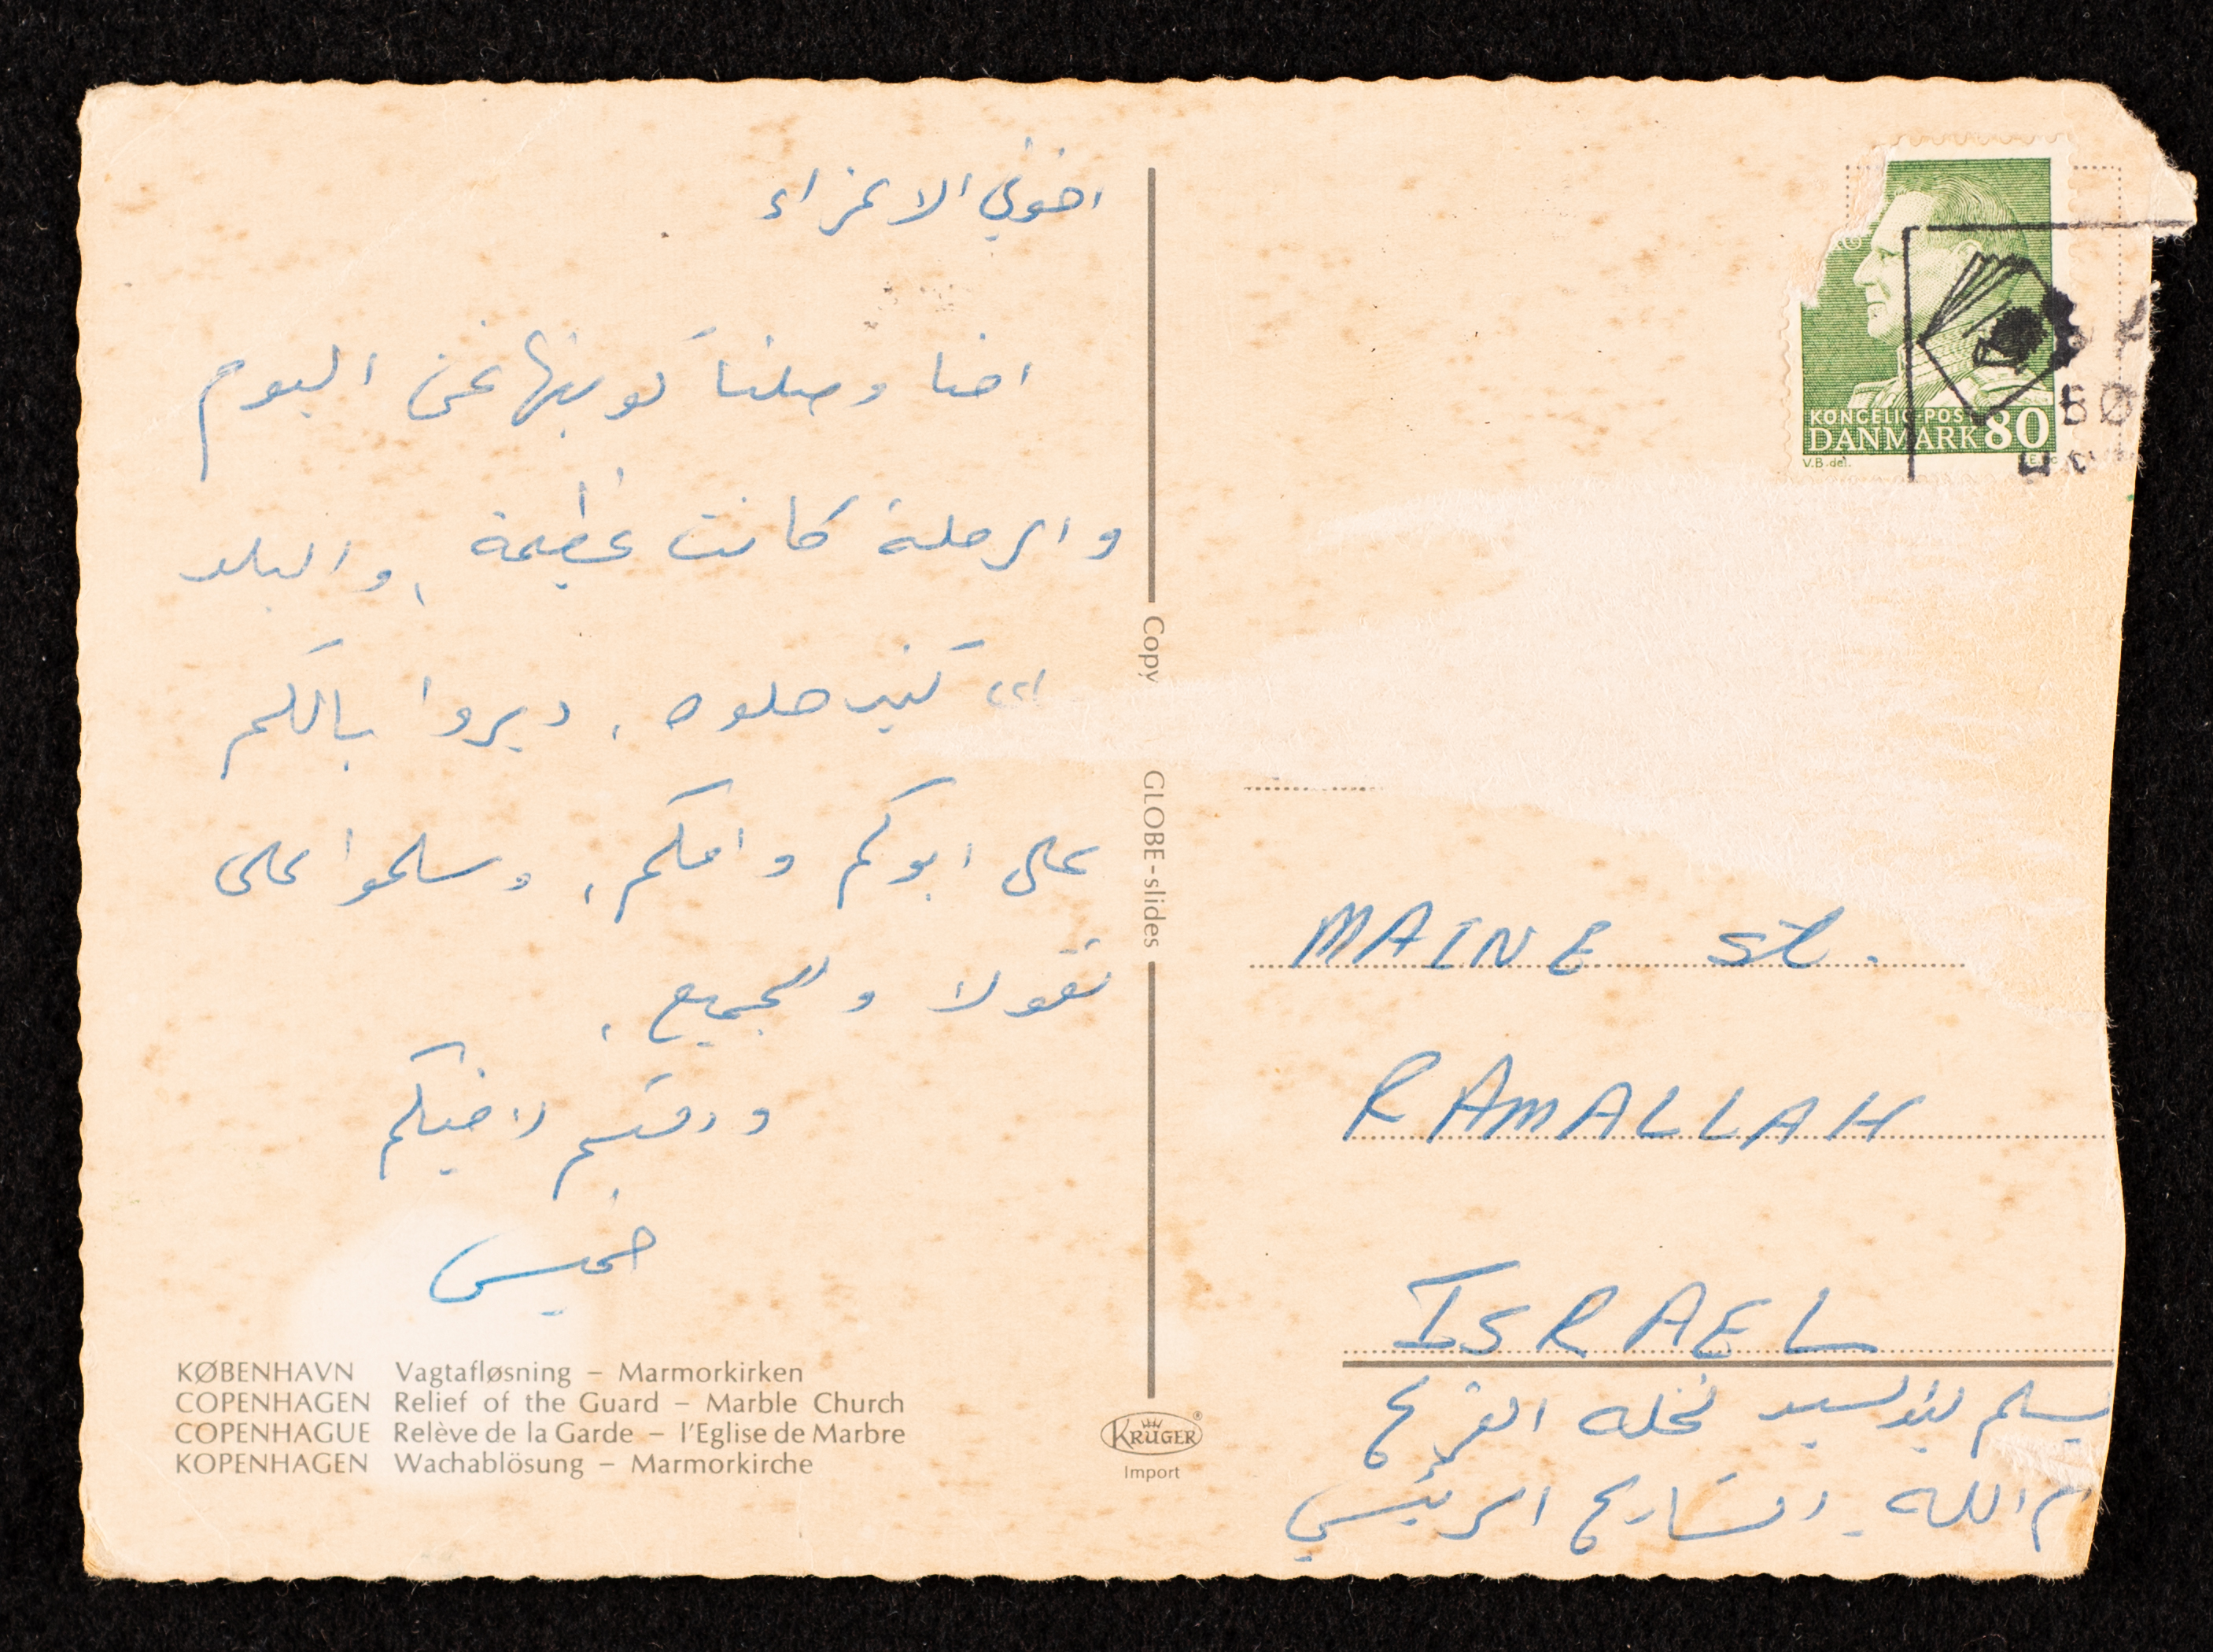 اخوتي الاعزاء
احنا وصلنا كوبنهاغن اليوم
والرحلة كانت عظيمة، والبلد
كثير حلوه. ديروا بالكم
على ابوكم وامكم، وسلموا على
نقولا والجميع.
ودمتم لاخيكم
خميس
KØBENHAVN Vagtafløsning – Marmorkirken
COPENHAGEN Relief of the Guard – Marble Church
COPENHAGUE Relève de la Garde – l'Eglise de Marbre
KOPENHAGEN Wachablösung – Marmorkirche
Copy GLOBE-slides
KRÜGER
Import
KONGELIG POST
DANMARK 80
V.B. del.
MAINE St.
RAMALLAH
ISRAEL
يسلم ليد السيد نخله القرع
رام الله - الشارع الرئيسي